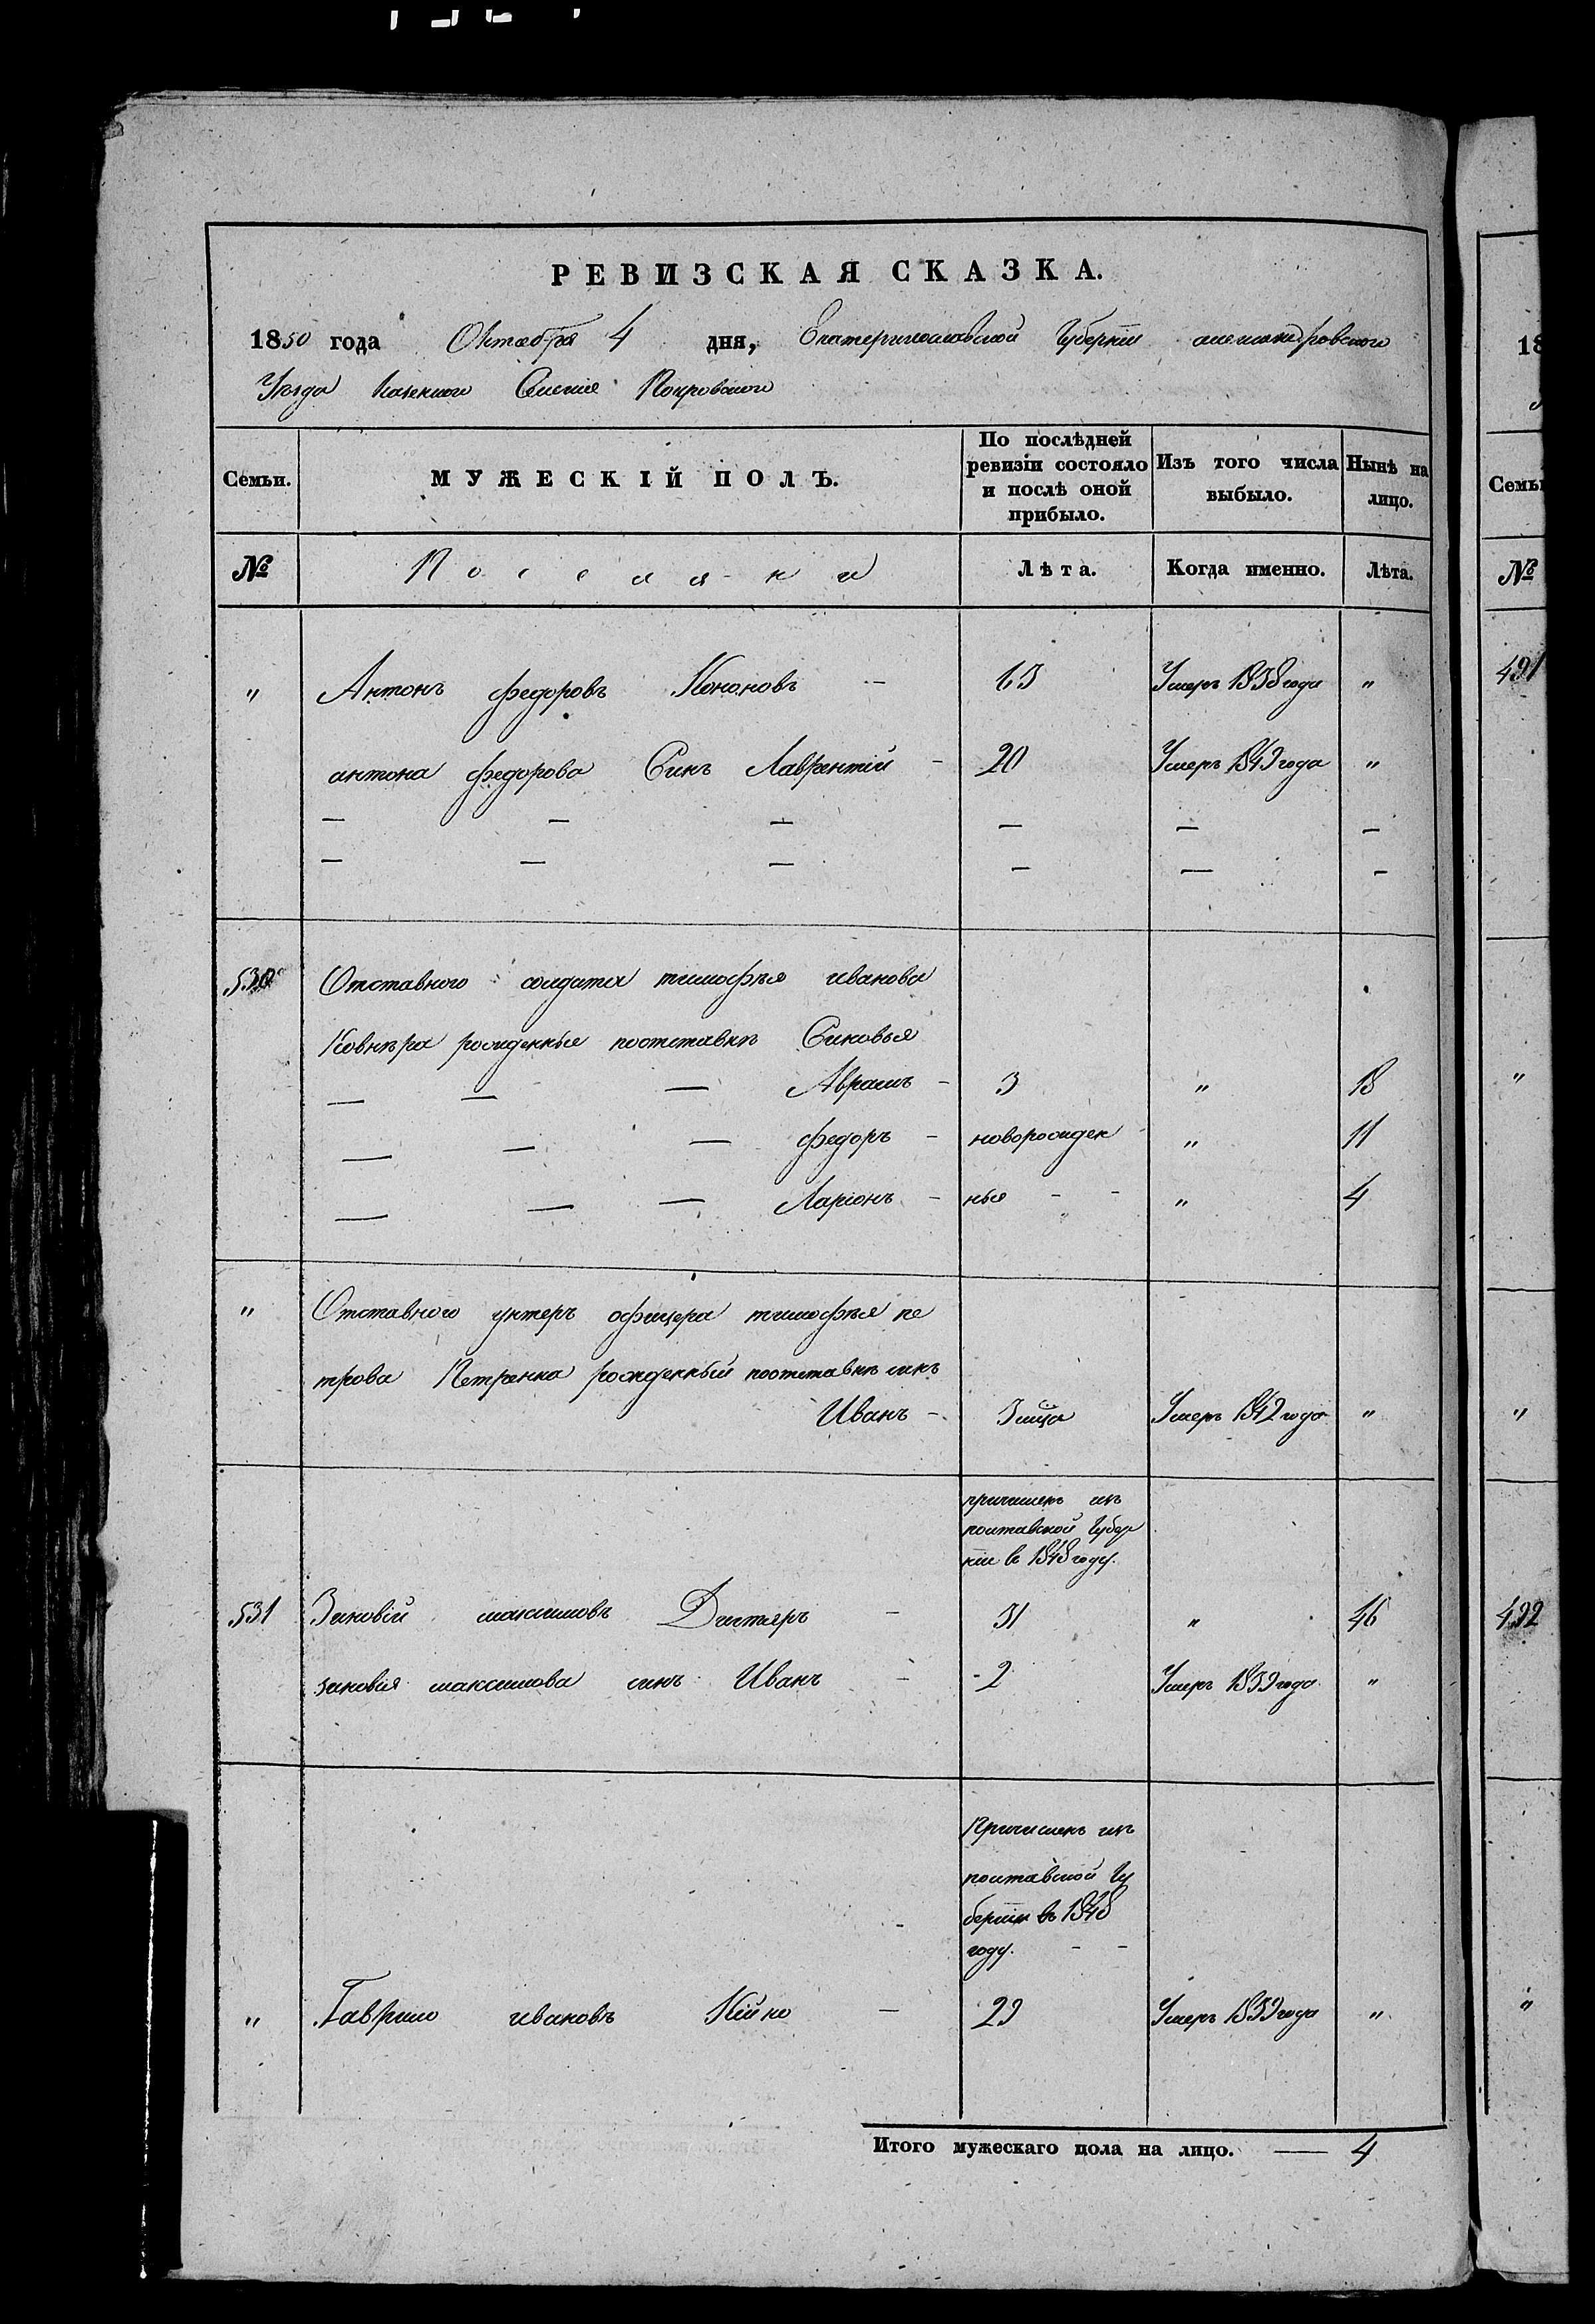 РЕВИЗСКАЯ СКАЗКА.
1850 года Октября 4 дня, Екатеринославской Губернии александровского
Уезда Казенного Селения Покровского
Семьи. МУЖЕСКІЙ ПОЛЪ. По послѣдней ревизіи состояло и послѣ оной прибыло. Изъ того числа выбыло. Нынѣ на лицо.
№ Поселяки Лѣта. Когда именно. Лѣта.
" Антонъ федоровъ Кононовъ — 63 Умеръ 1838 года "
антона федорова Синъ Лаврентій — 20 Умеръ 1849 года "
— — — — — —
— — — — — —
530 Отставного солдата тимофѣя иванова
Ковнѣра рожденные поотставкѣ Синовья
— — — Аврамъ — 3 " 18
— — — федоръ — новорожден " 11
— — — Ларіонъ — ные - - " 4
" Отставного унтеръ офицера тимофѣя пе
трова Петренка рожденный поотставкѣ синъ
Иванъ — 3 мца Умеръ 1842 года "
причисленъ изъ
полтавской Губер
ніи въ 1848 году.
531 Зиновій максимовъ — 31 " 46
зиновія максимова синъ Иванъ — 2 Умеръ 1839 года "
Причисленъ изъ
полтавской Гу
берніи въ 1848
году. - -
" Гаврило ивановъ Кійко — 29 Умеръ 1839 года "
Итого мужескаго пола на лицо. — 4
18
Семьи
№
491
"
"
492
"